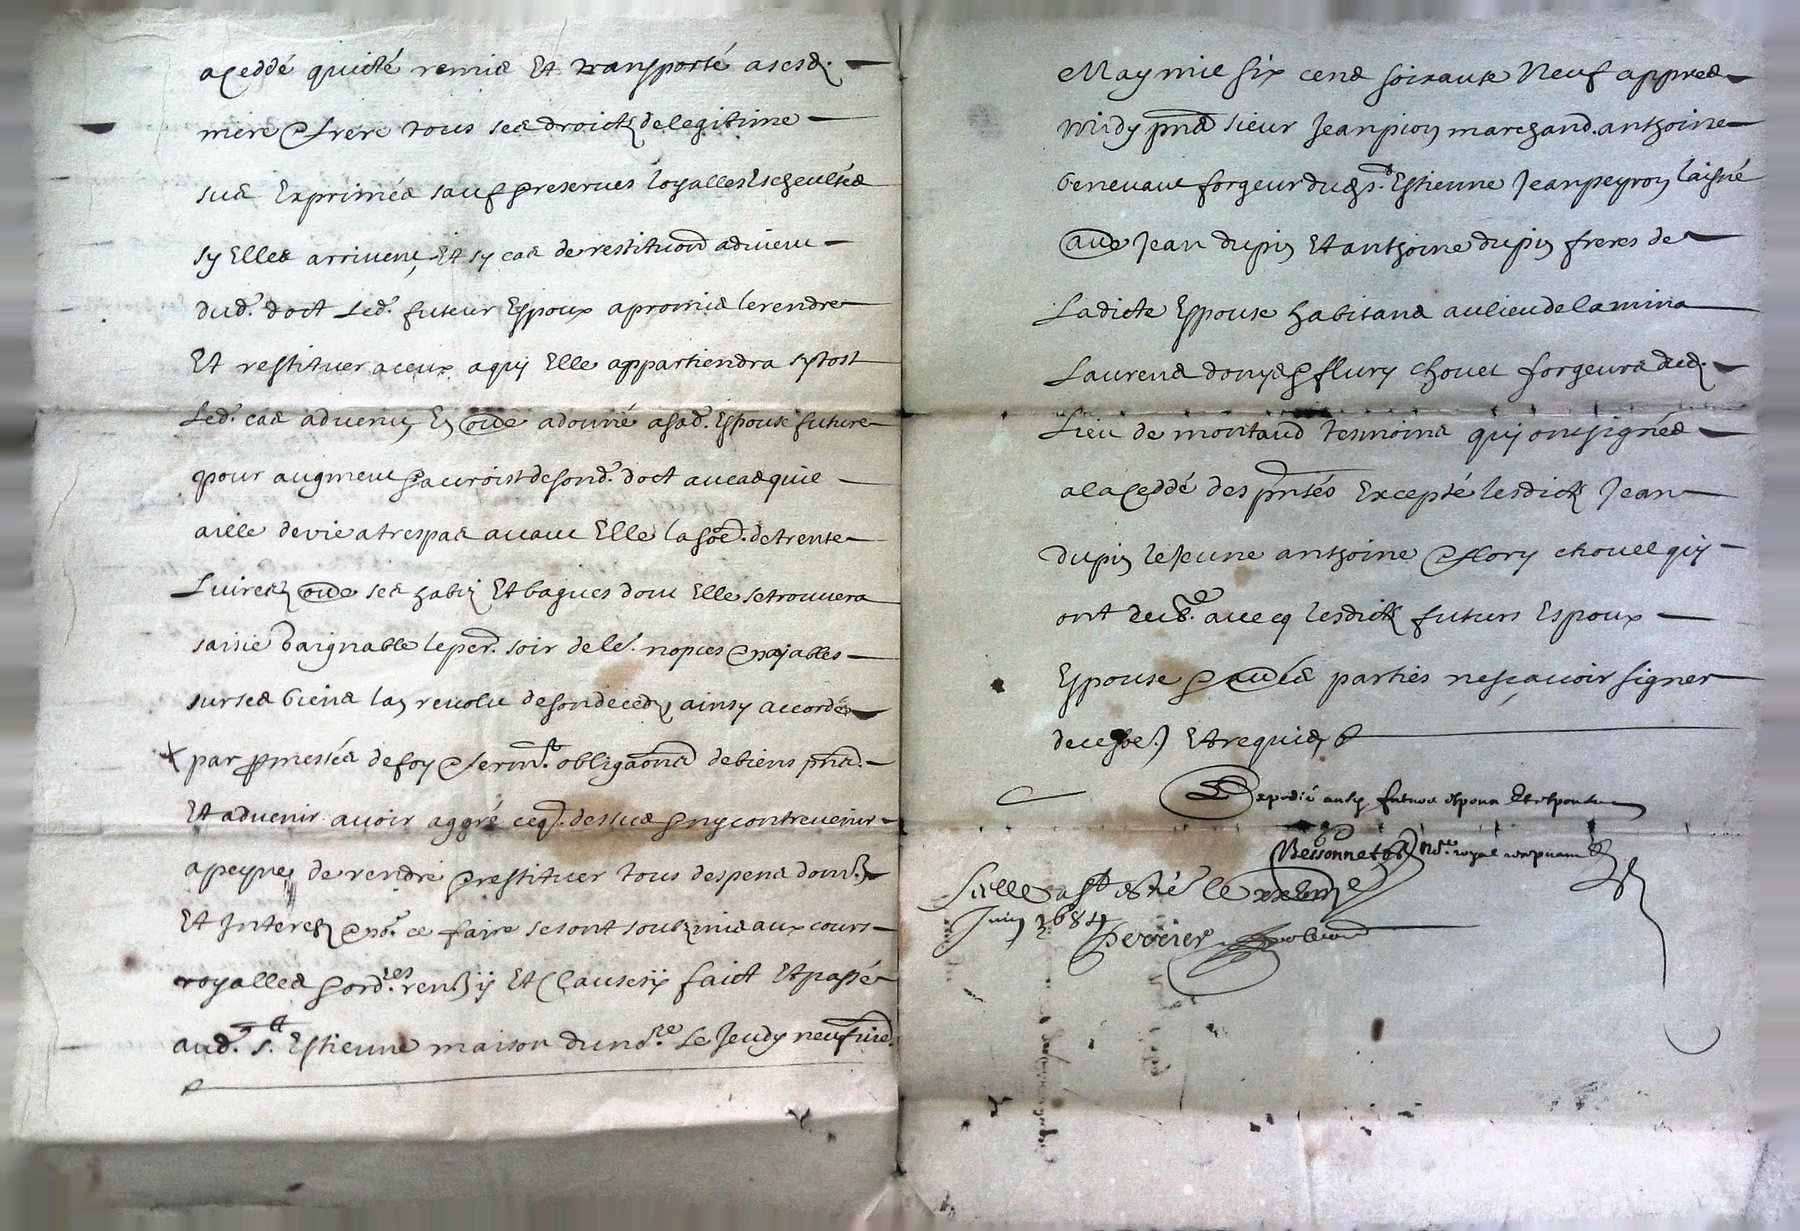 a ceddé quicté remis Et transporté a sesd.
mere & frere tous ses droictz de legitime
sus Exprimés sauf & reserves loyalles Escheultes
sy Elles arrivent, Et sy cas de restituon advient
dud. doct Led. futeur Espoux a promis le rendre
Et restituer a ceux a quy Elle appartiendra sy tost
Led. cas advenu, Et oue a donné a sad. Espouse future
pour augment & acroist de sond. doct au cas que
aille de vie a trespas avant Elle la soe. de trente
Luires oue ses habiz Et bagues dont Elle se trouvera
saisie gaignable le per. soir de le. nopces & payables
sur ses biens lan revolu de son deced ainsy accordé
par pmesses de foy & serm.t obligaons de biens pns.
Et advenir avoir aggré ceq. dessus & ny contrevenir
a peynes de rendre & restituer tous despens dom.
Et Interestz & po.r ce faire se sont soubzmis aux cours
royalles & ord.res ren Et Clauses faict Et passé
aud. S.t Estienne maison du no.re Le Jeudy neufvie.
May mil six cens soixante Neuf appres
midy pns sieur Jean pion marchand. anthoine
benevant forgeur dud s.t Estienne Jean peyron laisné
aue Jean dupin Et anthoine dupin freres de
Ladicte Espouse habitans au lieu de la mina
Laurens donys & flury Chovet forgeurs dud.
Lieu de montaud tesmoins quy ont signés
a la cedde des pntés Excepté lesdictz Jean
dupin le Jeune anthoine & flory chovet quy
ont avecq lesdictz futurs Espoux
Espouse & aues parties ne sçavoir signer
de ce Et requis
Expedié ausy futurs espoux Et espouse
Bessonnet no.re royal
Sçellé a S.t estiene le
Juin 1684
Perrier